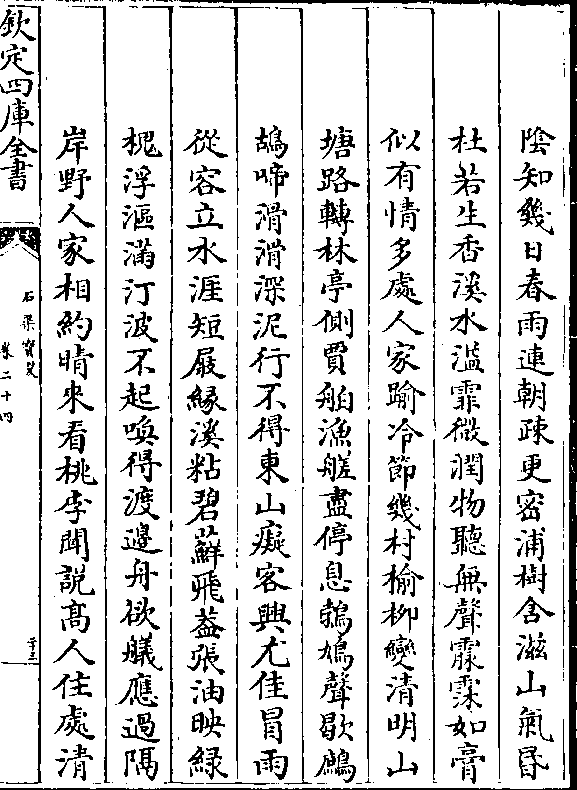 隂知幾日春雨連朝疎更密浦樹含滋山氣昏
杜若生香溪水濫霏微潤物聽無聲霢霂如膏
似有情多處人家踰冷節幾村榆柳變清明山
塘路轉林亭側賈舶漁艖盡停息鵓鳩聲歇鷓
鴣啼滑滑深泥行不得東山癡客興尤佳冒雨
從容立水涯短屐緣溪粘碧蘚飛蓋張油映緑
桃浮漚滿汀波不起喚得渡邊舟欲艤應過隔
岸野人家相約晴來看桃李聞説髙人住處清
欽定四庫全書
石渠寳笈
卷二十四
二十三